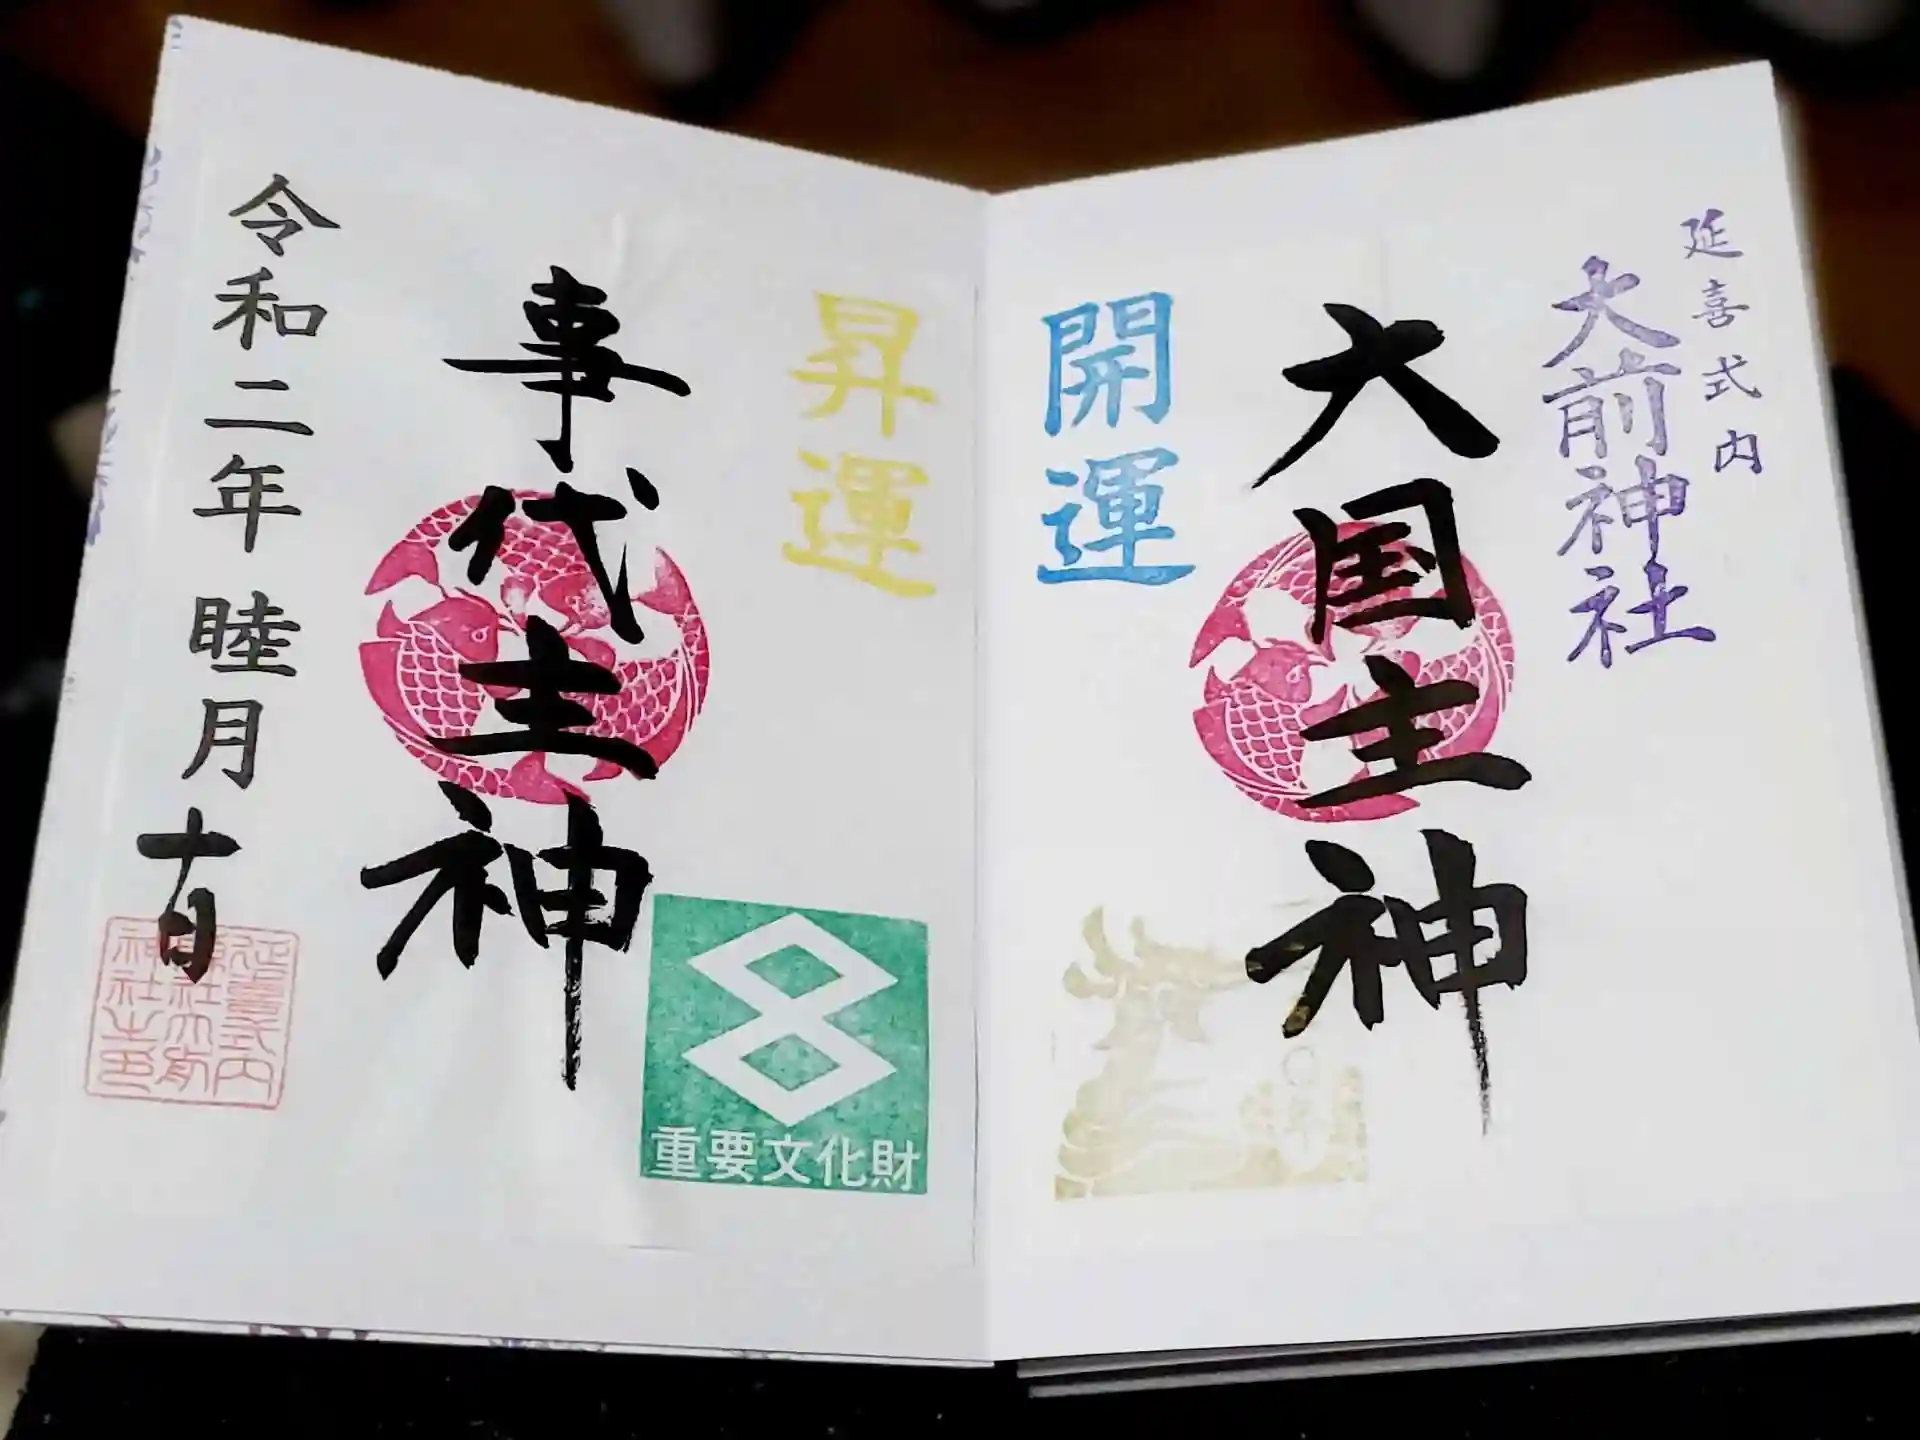 延喜式内
大前神社
大国主神
開運
昇運
事代主神
重要文化財
令和二年 睦月 十日
延喜式内
社大前
神社之印